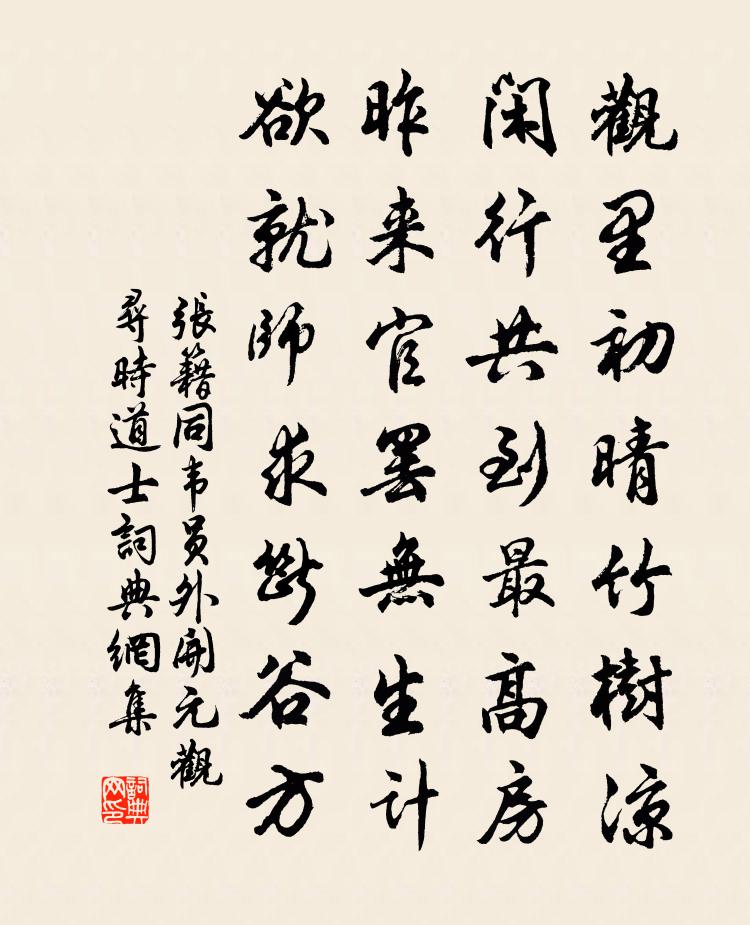 觀里初晴竹樹涼
閑行共到最高房
昨来官罢無生計
欲就師求斷谷方
張籍同韦員外開元觀
尋時道士詞典網集
詞典网印